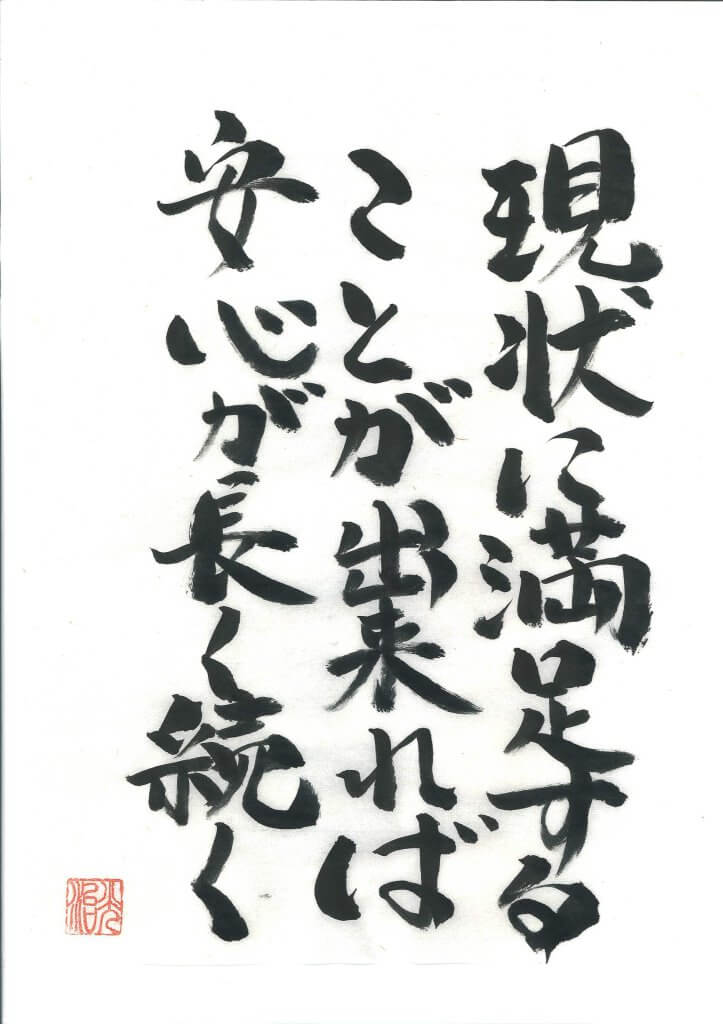 現状に満足する
ことが出来れば
安心が長く続く